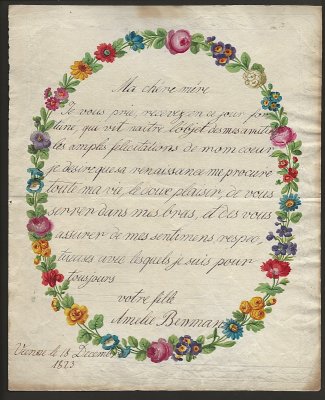 Ma chère mère
Je vous prie, recevez en ce jour for
tuné qui vit naître l'objet de mes amitiés
les amples félicitations de mom coeur
je désire que sa renaissance me procure
toute ma vie, le doux plaisir, de vous
serrer dans mes bras, et des vous
assurer de mes sentimens, respec,
tueuses avec lesquels je suis pour
toujours
votre fille
Amelie Benman
le 18 Decembre
1823